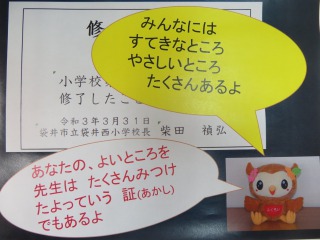 修
小学校
修了したこ
令和3年3月31日
袋井市立袋井西小学校長 柴田 禎弘
みんなには
すてきなところ
やさしいところ
たくさんあるよ
あなたの、よいところを
先生は たくさんみつけ
たよっていう 証(あかし)
でもあるよ